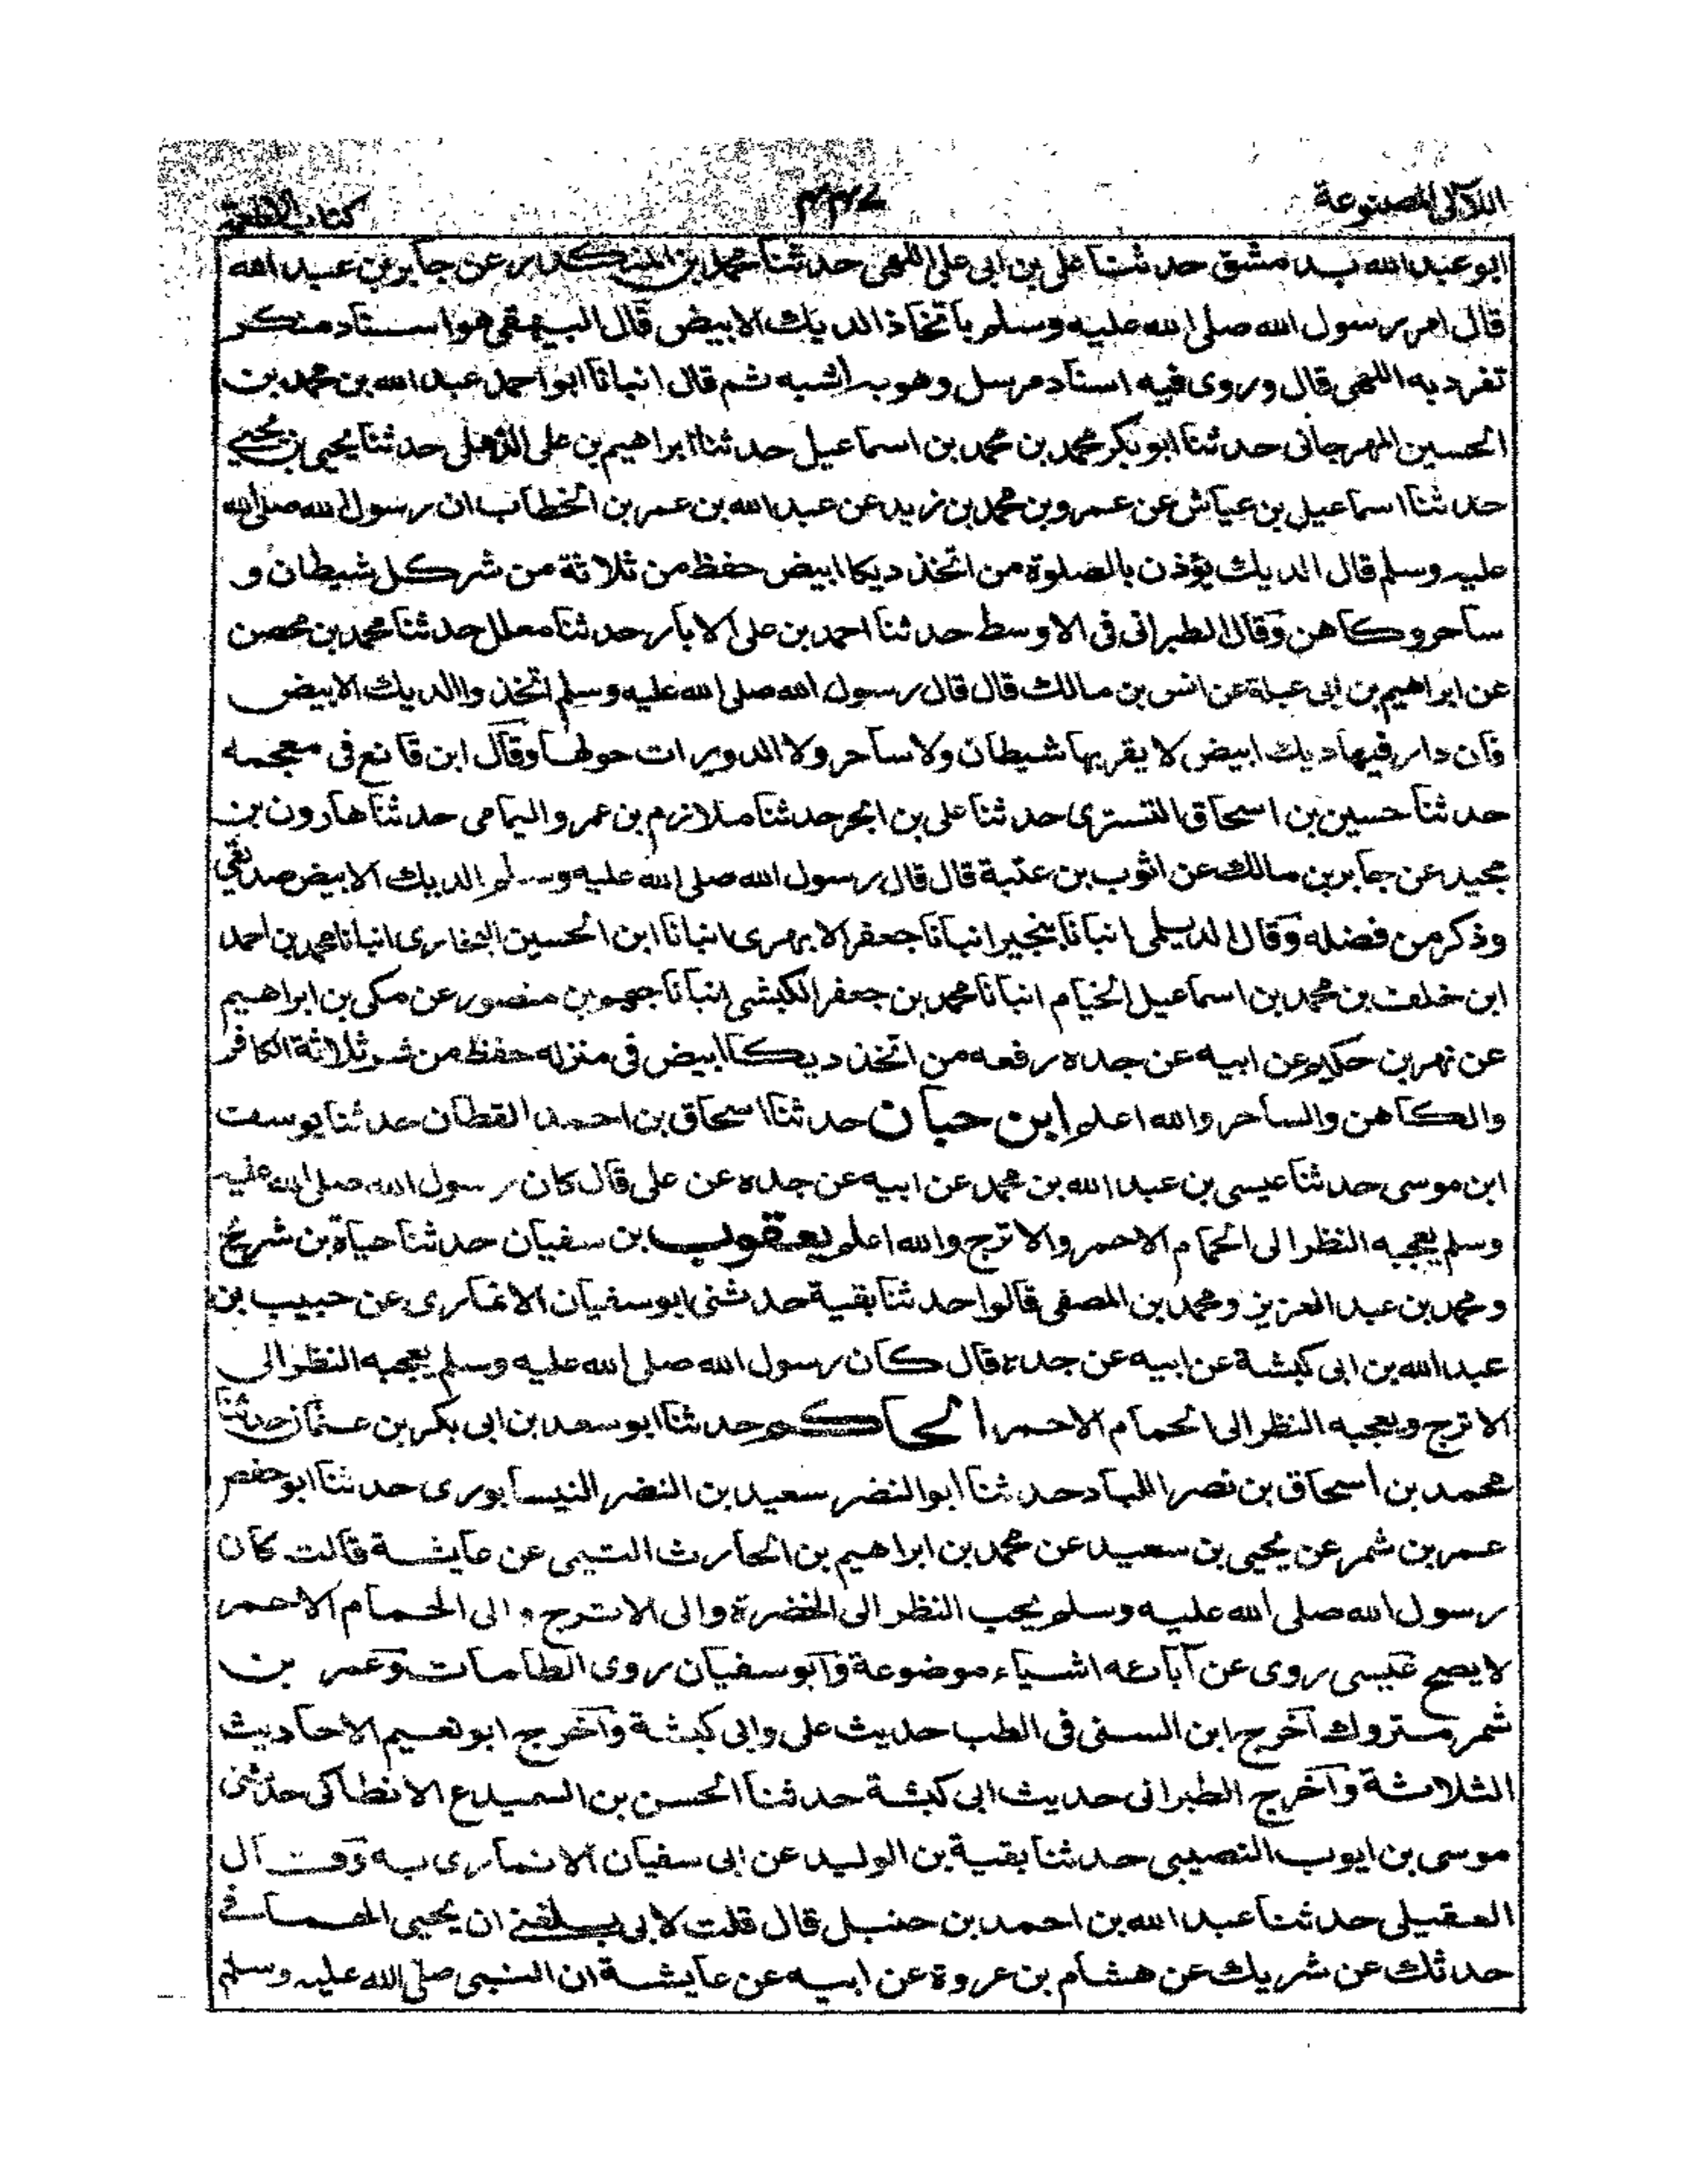 اللآلى المصنوعة كتاب الاطعمة
ابو عبد الله بدمشق حدثنا على بن ابى على اللهبى حدثنا محمد بن المنكدر عن جابر بن عبد الله
قال امر رسول الله صلى الله عليه وسلم باتخاذ الديك الابيض قال البيهقى هو اسناد منكر
تفرد به اللهبى قال وروى فيه اسناد مرسل وهو به اشبه ثم قال انبانا ابو احمد عبد الله بن محمد بن
الحسين المهرجانى حدثنا ابو بكر محمد بن محمد بن اسماعيل حدثنا ابراهيم بن على الذهلى حدثنا يحيى بن يحيى
حدثنا اسماعيل بن عياش عن عمرو بن محمد بن زيد عن عبد الله بن عمر بن الخطاب ان رسول الله صلى الله
عليه وسلم قال الديك يؤذن بالصلوة من اتخذ ديكا ابيض حفظ من ثلاثة من شر كل شيطان و
ساحر وكاهن وقال الطبرانى فى الاوسط حدثنا احمد بن على الابار حدثنا معلل حدثنا محمد بن محصن
عن ابراهيم بن ابى عبلة عن انس بن مالك قال قال رسول الله صلى الله عليه وسلم اتخذوا الديك الابيض
فان دار فيها ديك ابيض لا يقربها شيطان ولا ساحر ولا الدويرات حولها وقال ابن قانع فى معجمه
حدثنا حسين بن اسحاق التسترى حدثنا على بن ابحر حدثنا ملازم بن عمرو اليمامى حدثنا هارون بن
مجيد عن جابر بن مالك عن اثوب بن عتبة قال قال رسول الله صلى الله عليه وسلم الديك الابيض صديقى
وذكر من فضله وقال الديلمى انبانا بنجير انبانا جعفر الابهرى انبانا ابن الحسين البخارى انبانا محمد بن احمد
ابن خلف بن محمد بن اسماعيل الخيام انبانا محمد بن جعفر الكبشى انبانا جهم بن منصور عن مكى بن ابراهيم
عن بهز بن حكيم عن ابيه عن جده رفعه من اتخذ ديكا ابيض فى منزله حفظ من شر ثلاثة الكافر
والكاهن والساحر والله اعلم ابن حبان حدثنا اسحاق بن احمد القطان حدثنا يوسف
ابن موسى حدثنا عيسى بن عبد الله بن محمد عن ابيه عن جده عن على قال كان رسول الله صلى الله عليه
وسلم يعجبه النظر الى الحمام الاحمر والاترج والله اعلم يعقوب بن سفيان حدثنا حياة بن شريح
ومحمد بن عبد العزيز ومحمد بن المصفى قالوا حدثنا بقية حدثنى ابو سفيان الانمارى عن حبيب بن
عبد الله بن ابى كبشة عن ابيه عن جده قال كان رسول الله صلى الله عليه وسلم يعجبه النظر الى
الاترج ويعجبه النظر الى الحمام الاحمر الحاكم حدثنا ابو سعد بن ابى بكر بن عثمان حدثنا
محمد بن اسحاق بن نصر اللباد حدثنا ابو النضر سعيد بن النضر النيسابورى حدثنا ابو حفص
عمر بن شمر عن يحيى بن سعيد عن محمد بن ابراهيم بن الحارث التيمى عن عايشة قالت كان
رسول الله صلى الله عليه وسلم يحب النظر الى الخضرة والى الاترج والى الحمام الاحمر
لا يصح عيسى روى عن آبائه اشياء موضوعة وابو سفيان روى الطامات وعمر بن
شمر متروك اخرج ابن السنى فى الطب حديث على وابى كبشة واخرج ابو نعيم الاحاديث
الثلاثة واخرج الطبرانى حديث ابى كبشة حدثنا الحسن بن السميدع الانطاكى حدثنى
موسى بن ايوب النصيبى حدثنا بقية بن الوليد عن ابى سفيان الانمارى به وقال
العقيلى حدثنا عبد الله بن احمد بن حنبل قال قلت لابى بلغنى ان يحيى الحمانى
حدثك عن شريك عن هشام بن عروة عن ابيه عن عايشة ان النبى صلى الله عليه وسلم